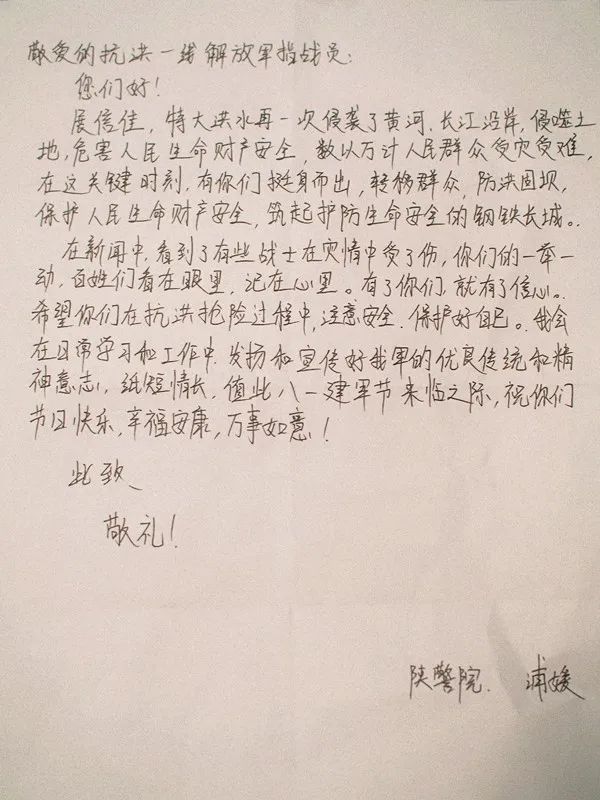 敬爱的抗洪一线解放军指战员:
您们好!
展信佳,特大洪水再一次侵袭了黄河、长江沿岸,侵噬土
地,危害人民生命财产安全,数以万计人民群众受灾受难,
在这关键时刻,有你们挺身而出,转移群众,防洪固坝,
保护人民生命财产安全,筑起护防生命安全的钢铁长城。
在新闻中,看到了有些战士在灾情中受了伤,你们的一举一
动,百姓们看在眼里,记在心里。有了你们,就有了信心。
希望你们在抗洪抢险过程中,注意安全,保护好自己。我会
在日常学习和工作中,发扬和宣传好我军的优良传统和精
神意志,纸短情长,值此八一建军节来临之际,祝你们
节日快乐,幸福安康,万事如意!
此致、
敬礼!
陕警院. 浦媛